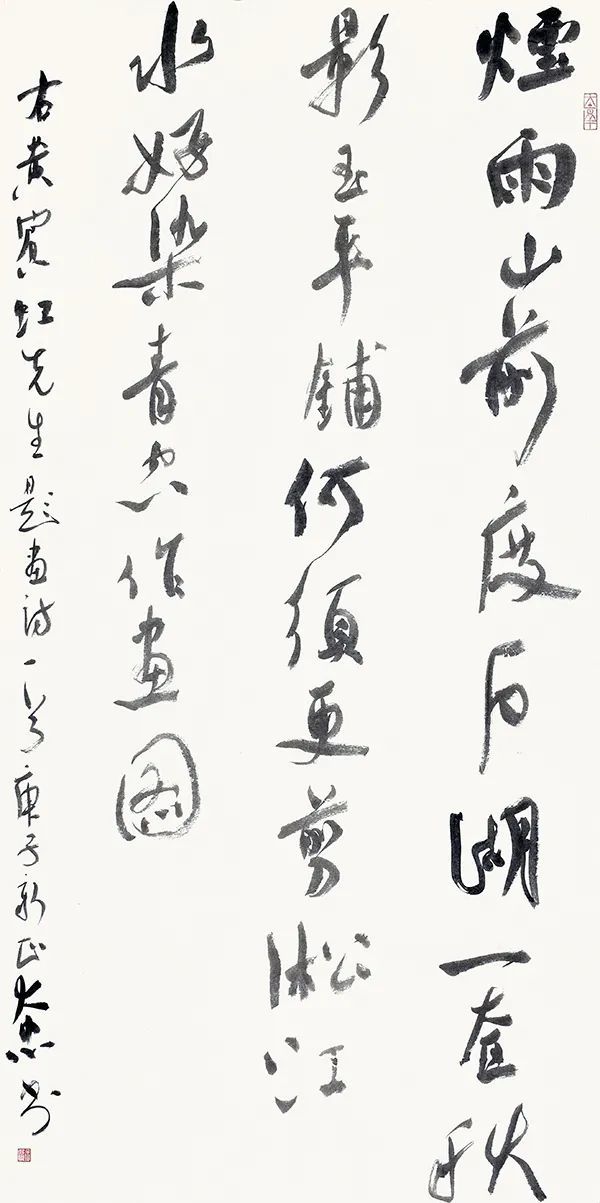 煙雨山前度石湖一奩秋
影玉平鋪何須更剪淞江
水好染青空作畫圖
右黄賓虹先生題畫詩一首庚子新正